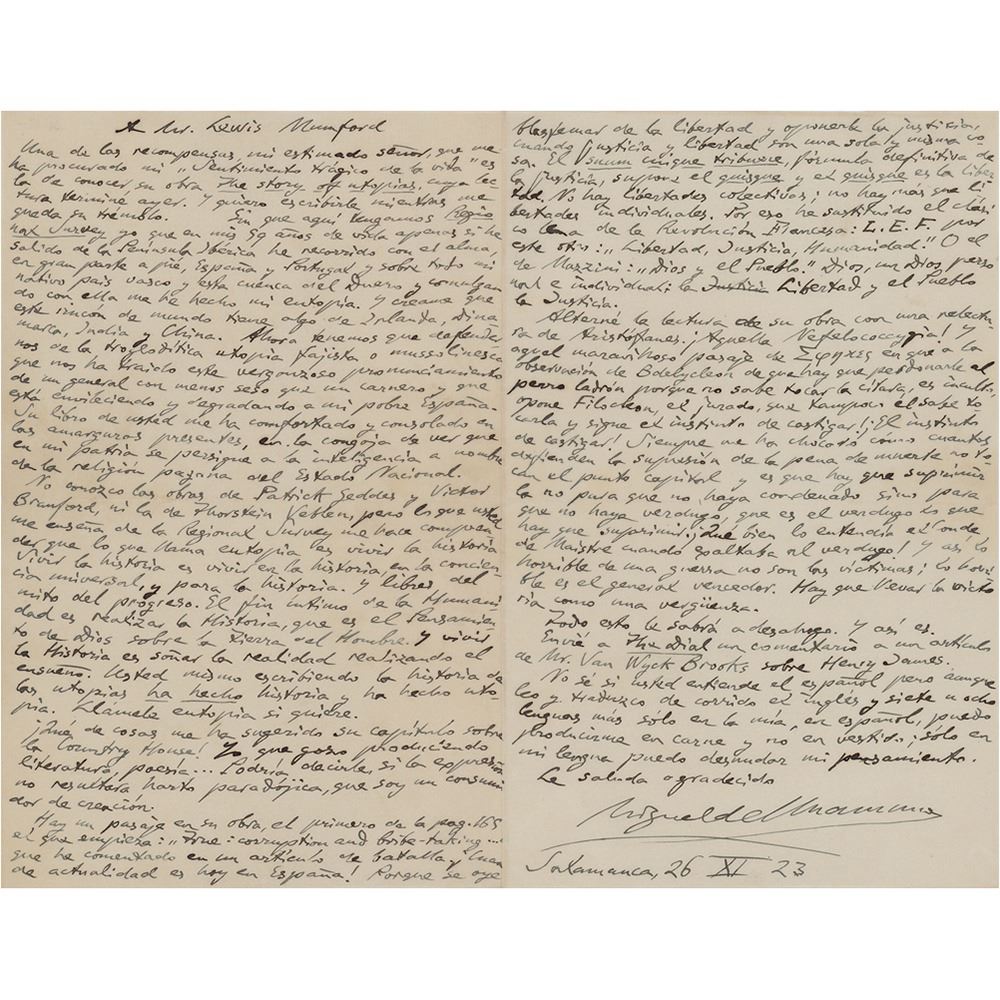 A Mr. Lewis Mumford
Una de las recompensas, mi estimado señor, que me
ha procurado mi "Sentimiento trágico de la vida" es
la de conocer su obra, The story of utopias, cuya lec
tura terminé ayer. Y quiero escribirle mientras me
queda su trémolo. Sin que aquí tengamos Regio
nal Survey yo que en mis 59 años de vida apenas si he
salido de la Península Ibérica he recorrido con el alma,
en gran parte a pié, España y Portugal y sobre todo mi
nativo pais vasco y esta cuenca del Duero y comulgan
do con ella me he hecho mi eutopia. Y créame que
este rincon de mundo tiene algo de Irlanda, Dina
marca, India y China. Ahora tenemos que defender
nos de la troglodítica utopia fajista o mussolinesca
que nos ha traido este vergonzoso pronunciamiento
de un general con menos seso que un carnero y que
está envileciendo y degradando a mi pobre España.
Su libro de usted me ha confortado y consolado en
las amarguras presentes, en la congoja de ver que
en mi patria se persigue a la inteligencia a nombre
de la religión pagana del Estado Nacional.
No conozco las obras de Patrick Geddes y Victor
Branford, ni la de Thorstein Veblen, pero lo que usted
me enseña de la Regional Survey me hace compren
der que lo que llama eutopia es vivir la historia
Vivir la historia es vivir en la historia, en la concien
cia universal, y para la historia. Y libres del
mito del progreso. El fin intimo de la Humani
dad es realizar la Historia, que es el Pensamien
to de Dios sobre la tierra del Hombre. Y vivir
la Historia es soñar la realidad realizando el
ensueño. Usted mismo escribiendo la historia de
las utopias ha hecho historia y ha hecho uto
pia. Llámela eutopia si quiere.
¡Qué de cosas me ha sugerido su capítulo sobre
la Country House! Yo que gozo produciendo
literatura, poesía... Podría decirle, si la expresión
no resultara harto paradójica, que soy un consumi
dor de creación.
Hay un pasaje en su obra, el primero de la pag. 165
el que empieza: "True: corruption and bribe-taking..."
que he comentado en un artículo de batalla y ¡cuan
de actualidad es hoy en España! Porque se oye
blasfemar de la libertad y oponerle la justicia,
cuando justicia y libertad son una sola y misma co
sa. El suum cuique tribuere, fórmula definitiva de
la justicia, supone el quisque y el quisque es la liber
tad. No hay libertades colectivas; no hay más que li
bertades individuales. Por eso he sustituido el clási
co lema de la Revolución Francesa: L. E. F. por
este otro: "Libertad, Justicia, Humanidad." O el
de Mazzini: "Dios y el Pueblo." Dios, un Dios perso
nal e individual: la Justicia Libertad y el Pueblo
la Justicia.
Alterné la lectura de su obra con una relectu
ra de Aristófanes. ¡Aquella Nefelococcygia! y
aquel maravilloso pasaje de Σφηκες en que a la
observación de Bdelycleon de que hay que perdonarle al
perro ladrón porque no sabe tocar la cítara, es inculto,
opone Filocleon, el jurado, que tampoco el sabe to
carla y sigue el instinto de castigar! ¡El instinto
de castigar! Siempre me ha chocado como cuantos
defienden la supresión de la pena de muerte no to
can el punto capital y es que hay que suprimir
la no para que no haya condenado sino para
que no haya verdugo, que es el verdugo lo que
hay que suprimir. ¡Que bien lo entendía el conde
de Maistre cuando exaltaba al verdugo! Y así lo
horrible de una guerra no son las víctimas; lo horri
ble es el general vencedor. Hay que llevar la victo
ria como una vergüenza.
Todo esto le sabrá a desahogo. Y así es.
Envié a The Dial un comentario a un artículo
de Mr. Van Wyck Brooks sobre Henry James.
No sé si usted entiende el español pero aunque
leo y traduzco de corrido el inglés y siete u ocho
lenguas más sólo en la mía, en español, puedo
producirme en carne y no en vestido; sólo en
mi lengua puedo desnudar mi pensamiento.
Le saluda agradecido
Miguel de Unamuno
Salamanca, 26 XI 23